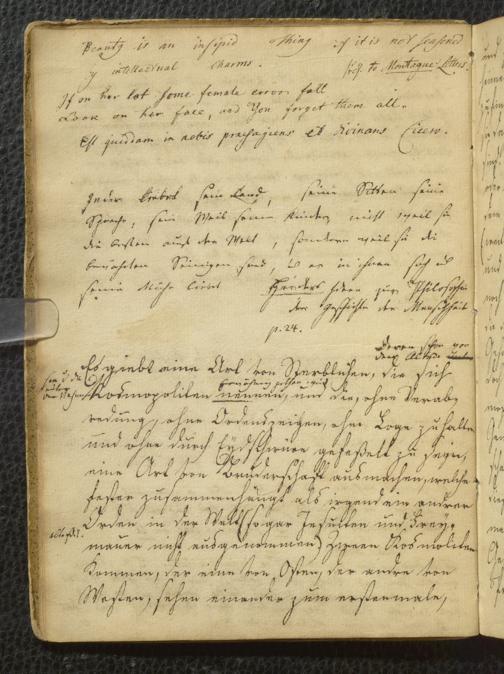 Beauty is an insipid thing if it is not seasoned
by intellectual charms. to Montague Letters.
If on her lot some female errors fall
Look on her face, and You forget them all.
Est quiddam in nobis praesagiens et divinans Cicero.
Jeder liebet sein Land, seine Sitten seine
Sprache, sein Weib seine Kinder nicht weil sie
die besten auf der Welt, sondern weil sie die
bewährten Seinigen sind, u er in ihnen sich u
seine Mühe liebt Herders Ideen zur Philosophie
der Geschichte der Menschheit
p. 24.
Es giebt eine Art von Sterblichen, die sich
Kosmopoliten nennen, und die, ohne Verab,
redung, ohne Ordenszeichen, ohne Loge zu halten
und ohne durch Eydschwüre gefeßelt zu seyn,
eine Art von Bruderschaft ausmachen, welche
fester zusammenhängt als irgend ein andrer
Orden in der Welt (sogar Jesuiten und Frey,
mäuer nicht ausgenommen) Zween Kosmopoliten
kommen, der eine von Osten, der andre von
Westen, sehen einander zum erstenmale,